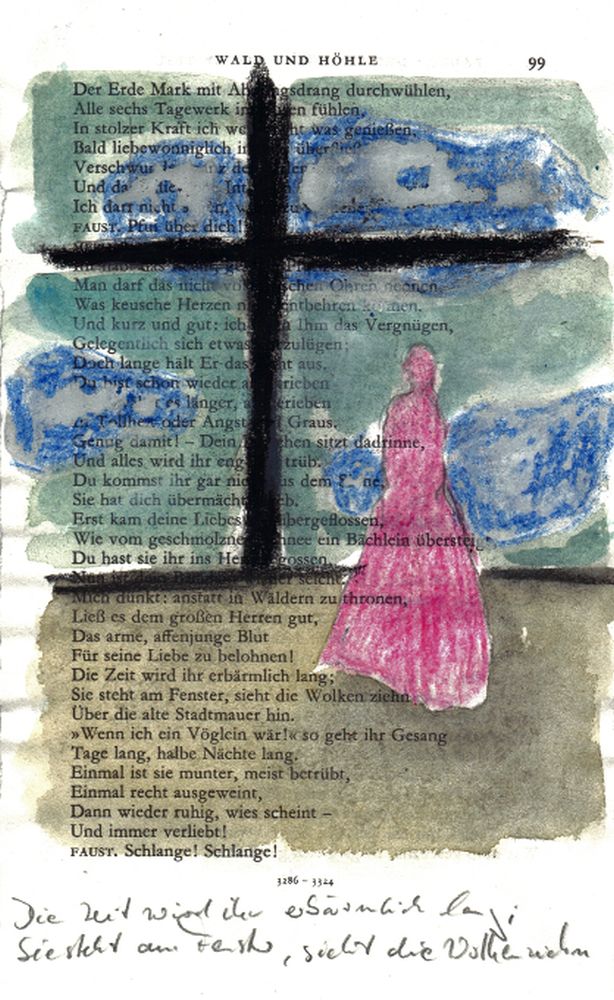 WALD UND HÖHLE 99
Der Erde Mark mit durchwühlen,
Alle sechs Tagewerk fühlen,
In stolzer Kraft ich was genießen,
Bald liebewonniglich
Und
Ich darf nicht
FAUST. Pfui über dich!
Man darf das nicht Ohren nennen,
Was keusche Herzen entbehren können.
Und kurz und gut: ich Ihm das Vergnügen,
Gelegentlich sich etwas
Doch lange hält Er das aus.
Du bist schon wieder
länger,
Tollheit oder Angst Graus.
Genug damit! – Dein sitzt dadrinne,
Und alles wird ihr eng trüb.
Du kommst ihr gar aus dem
Sie hat dich
Erst kam deine übergeflossen,
Wie vom geschmolznen ein Bächlein übersteigt
Du hast sie ihr ins
seicht
Mich dünkt: anstatt in Wäldern zu thronen,
Ließ es dem großen Herren gut,
Das arme, affenjunge Blut
Für seine Liebe zu belohnen!
Die Zeit wird ihr erbärmlich lang;
Sie steht am Fenster, sieht die Wolken ziehn
Über die alte Stadtmauer hin.
»Wenn ich ein Vöglein wär!« so geht ihr Gesang
Tage lang, halbe Nächte lang.
Einmal ist sie munter, meist betrübt,
Einmal recht ausgeweint,
Dann wieder ruhig, wies scheint –
Und immer verliebt!
FAUST. Schlange! Schlange!
3286 – 3324
Die Zeit wird ihr erbärmlich lang;
Sie steht am Fenster, sieht die Wolken ziehn